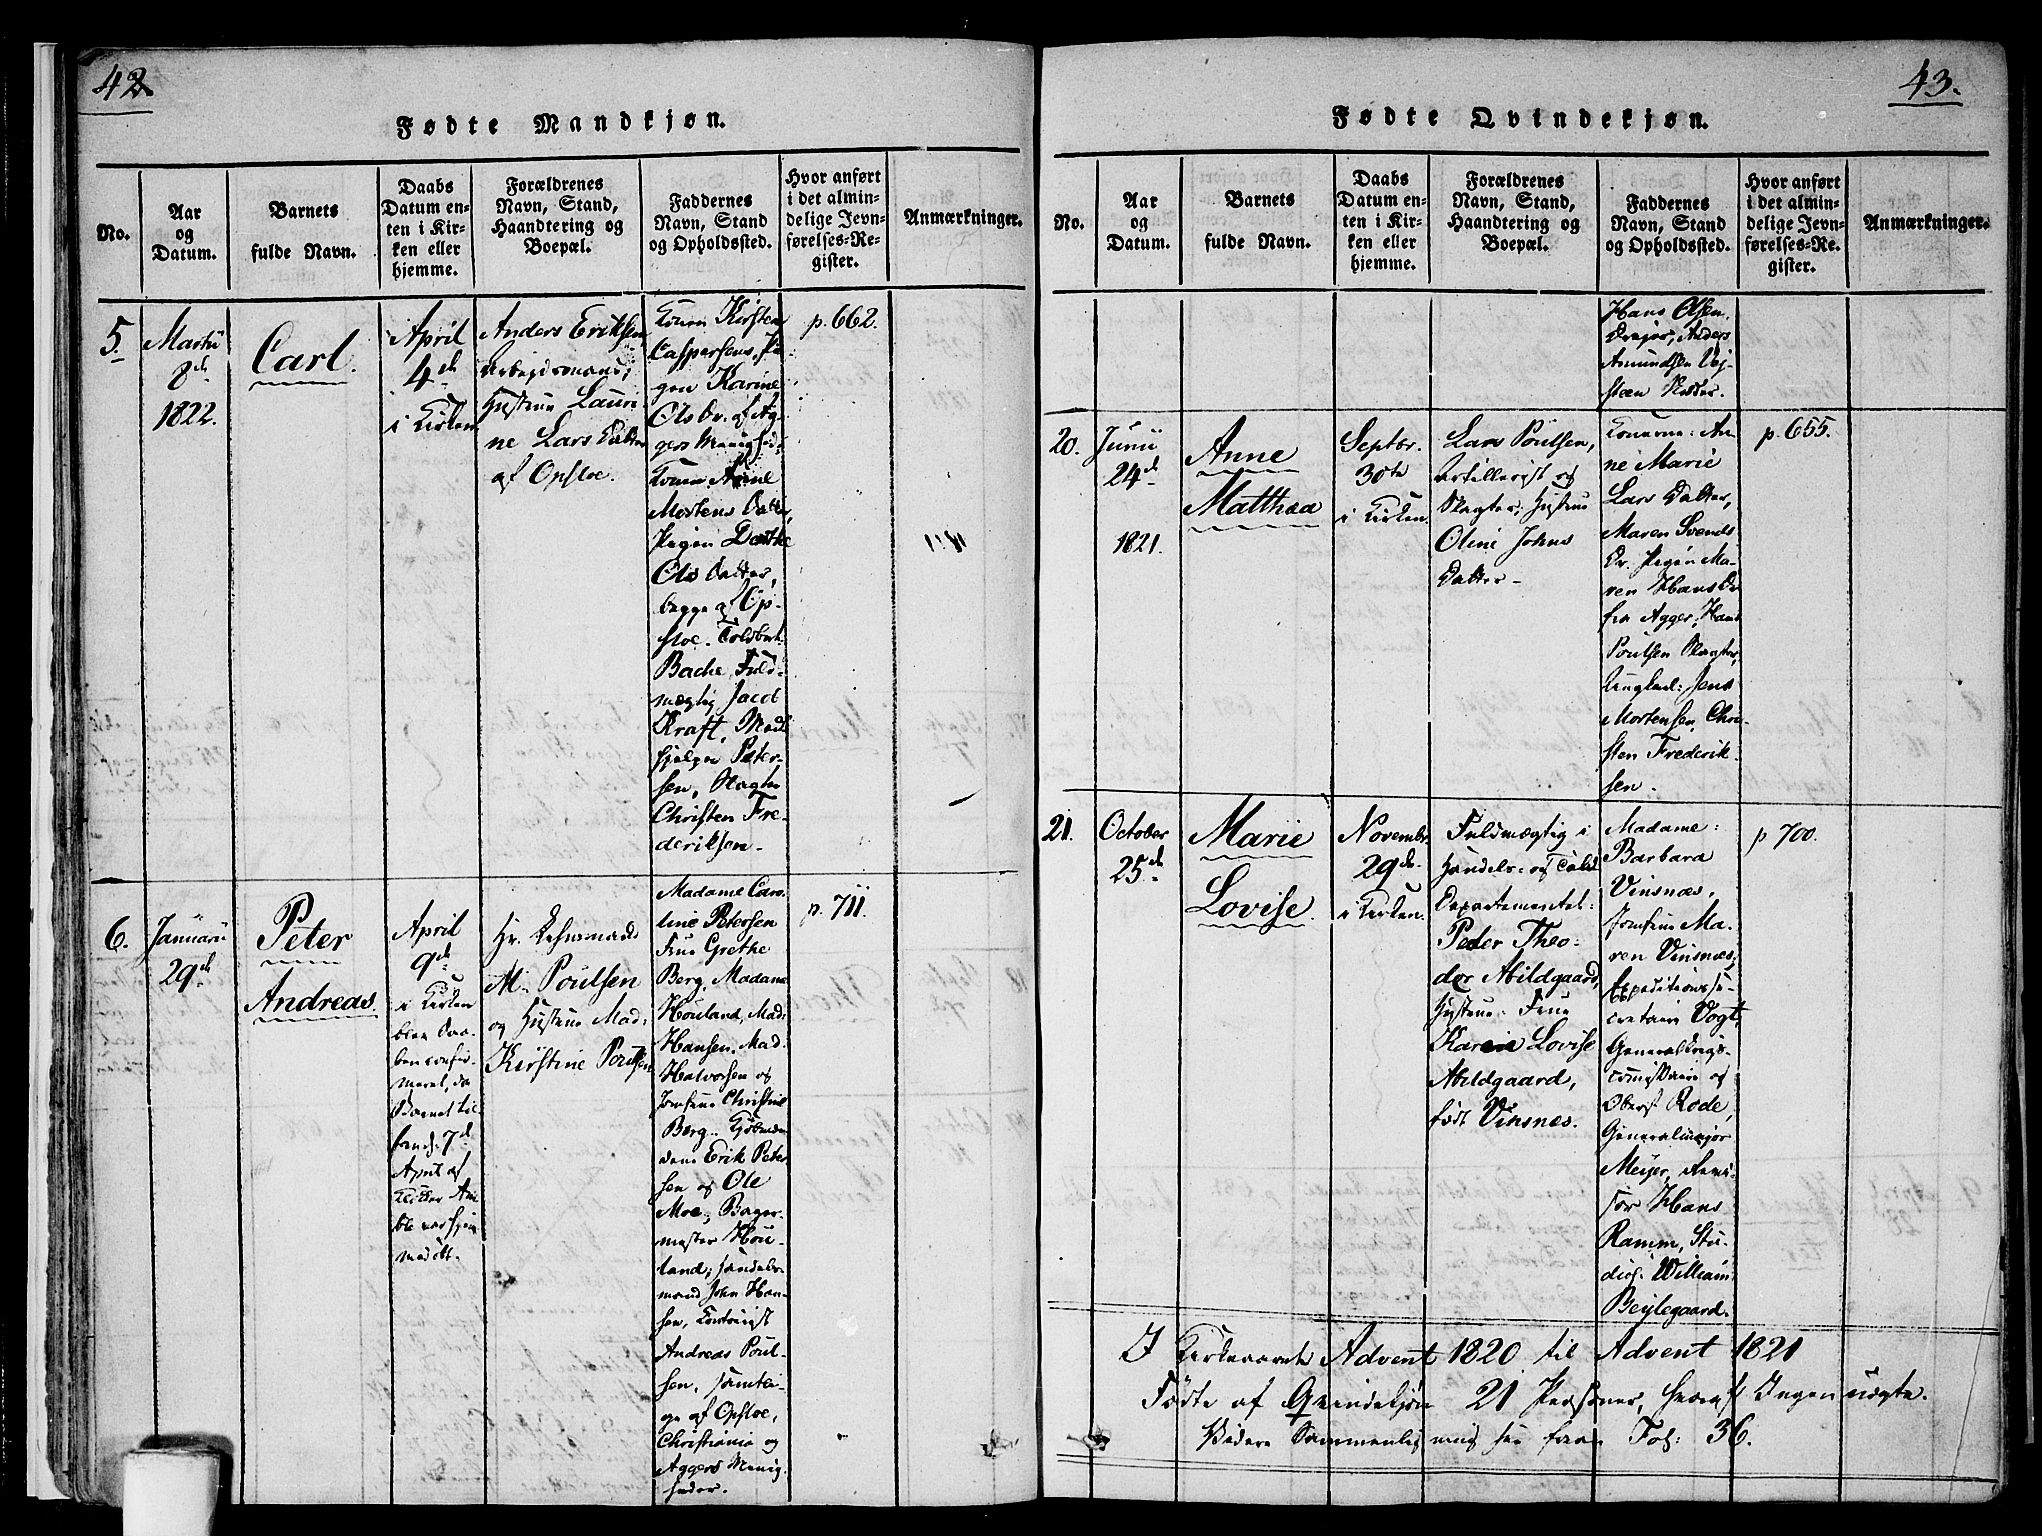 42.
Fødte Mandkjøn.
No.
Aar
og
Datum.
Barnets
fulde Navn.
Daabs
Datum en-
ten i Kir-
ken eller
hjemme.
Forældrenes
Navn, Stand,
Haandtering og
Boepæl.
Faddernes
Navn, Stand
og Opholdssted.
Hvor anført
i det almin-
delige Jevn-
førelses-Re-
gister.
Anmærkninger.
5.
Martii
8de
1822.
Carl.
April
4de
i Kirken
Anders Eriksen
Arbeidsmand,
Hustrue Lauri
ne Lars Datter
af Opsloe.
Konen Kirsten
Caspersens, Pi
gen Karine
Ols Dr. af Ag-
gers Menighed
Konen Anne
Mortens Datter,
Pigen Dorthe
Ols Datter,
begge af Op-
sloe. Toldbetj.
Bache, Fuld-
mægtig Jacob
Kraft,
Peter-
sen, Slagter
Christen Fre-
deriksen.
p. 662.
6.
Januarii
29de
Peter
Andreas.
April
9de
i Kirken
blev Daa-
ben confir-
meret, da
Barnet til
forn: 7de
April af
hjem-
medøbt.
Hr. Lehnsmand
M. Poulsen
og Hustrue Mad:
Kirstine Poulsen
Madame Caro-
line Petersen
Frue Grethe
Berg, Madame
Houland, Mad:
Hansen, Mad:
Halvorsen og
Jomfrue Christine
Berg. Kjøbmæn
dene Erik Peter
sen og Ole
Moe, Bager-
mester Hou-
land, Handels-
mand John Han-
sen, Contorist
Andreas Poul-
sen, samtli-
ge af Opsloe,
Christiania og
Aggers Menig-
heder.
p. 711.
43.
Fødte Qvindekjøn.
No.
Aar
og
Datum.
Barnets
fulde Navn.
Daabs
Datum en-
ten i Kir-
ken eller
hjemme.
Forældrenes
Navn, Stand,
Haandtering og
Boepæl.
Faddernes
Navn, Stand
og Opholdssted.
Hvor anført
i det almin-
delige Jevn-
førelses-Re-
gister.
Anmærkninger.
Hans Olsen
Dreier, Anders
Amundsen
20.
Junii
24de
1821.
Anne
Matthea
Septbr.
30te
i Kirken
Lars Poulsen,
Artillerist og
Slagter, Hustrue
Oline Johns
Datter.
Konerne: An
ne Marie
Lars Datter,
Maren Svends
Dr. Pigen Ma-
ren Hans Dr
fra Agger, Hans
Poulsen Slagter,
Ungkarl: Jens
Mortensen, Chri-
sten Frederik-
sen.
p. 655.
21.
October
25de
Marie
Lovise.
Novembr.
29de
i Kirken.
Fuldmægtig i
Handels- og Told
Departementet:
Peder Theo-
dor Abildgaard,
Hustrue: Frue
Karen Lovise
Abildgaard,
født Vinsnes.
Madame:
Barbara
Vinsnæs,
Jomfrue Ma-
ren Vinsnæs,
Expeditionsse-
cretaire Vogt,
General Krigs-
comissaire og
Oberst Rode,
Generalmajor
Meijer,
Hans
Ramm, Stu-
dios: William
Bejlegaard.
p 700.
I Kirkeaaret Advent 1820 til Advent 1821
Fødte af Qvindekjøn 21 Personer, hvoraf Ingen uægte.
Videre Sammenligning see foran Fol: 36.